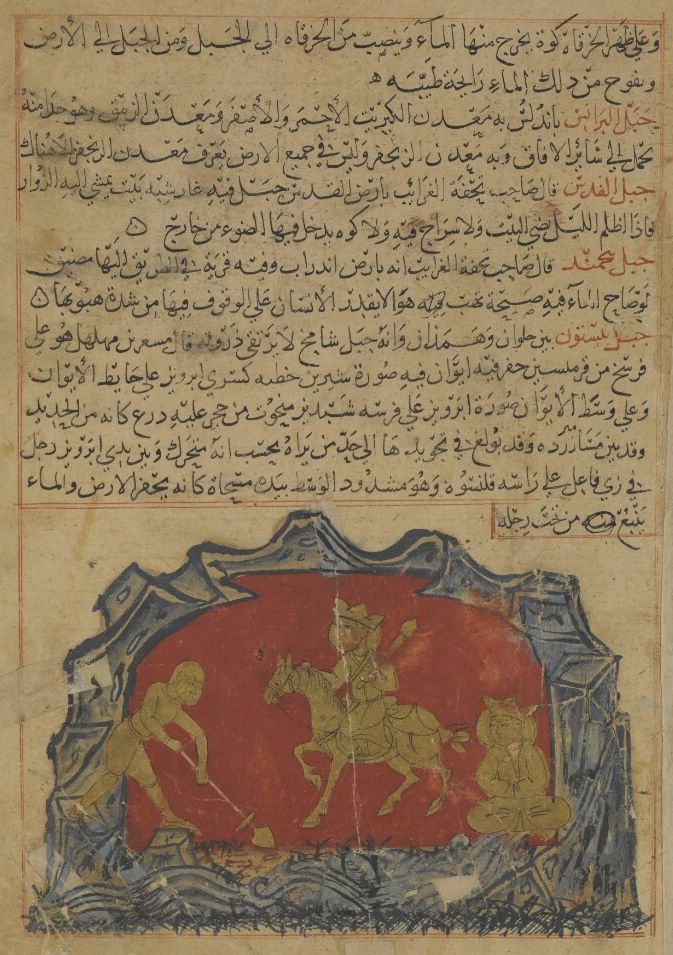 وعلي ظهر الخرقاه كوة يخرج منها المآء وينصب من الخرقاه الي الجبل ومن الجبل الي الأرض
ويفوح من ذلك الماء رايحة طيبه
جبل البرانس باندلس به معدن الكبريت الأحمر والأصفر ومعدن الزيبق وهو جدا منه
يحمل الي سائر الافاق وبه معدن الزنجفر وليس في جميع الارض يعرف معدن الزنجفر الا هناك
جبل القدس قال صاحب تحفة الغرايب بارض القدس جبل فيه غار شبه بيت يمشي اليه الزوار
فاذا اظلم الليل يضي البيت ولا سراج فيه ولا كوه يدخل فيها الضوء من خارج
جبل قال صاحب تحفة الغرايب انه بارض اندراب وفيه قرية في الطريق اليها مضيق
لو صاح فيه صيحة تهب هوا لا يقدر الأنسان علي الوقوف فيها من شدة هبوبها
جبل بيستون بين حلوان وهمذان وانه جبل شامخ لا يرتقي ذروته قال مسعر بن مهلهل هو علي
فرسخ من قرمسين حفر فيه ايوان فيه صورة شيرين خطيه كسري ابرويز علي حايط الأيوان
وعلي وسط الأيوان صورة ابرويز علي فرسه شبديز منحوت من حجر عليه درع كانه من الحديد
وقد بين زرده وقد بولغ في تجويد ها الي حد من يراه يحسب انه متحرك وبين يدي ابرويز رجل
في زي فاعل علي راسه قلنسوه وهو مشدود الوسط بيده مسحاة كانه يحفر الارض والماء
ينبع من تحت رجله